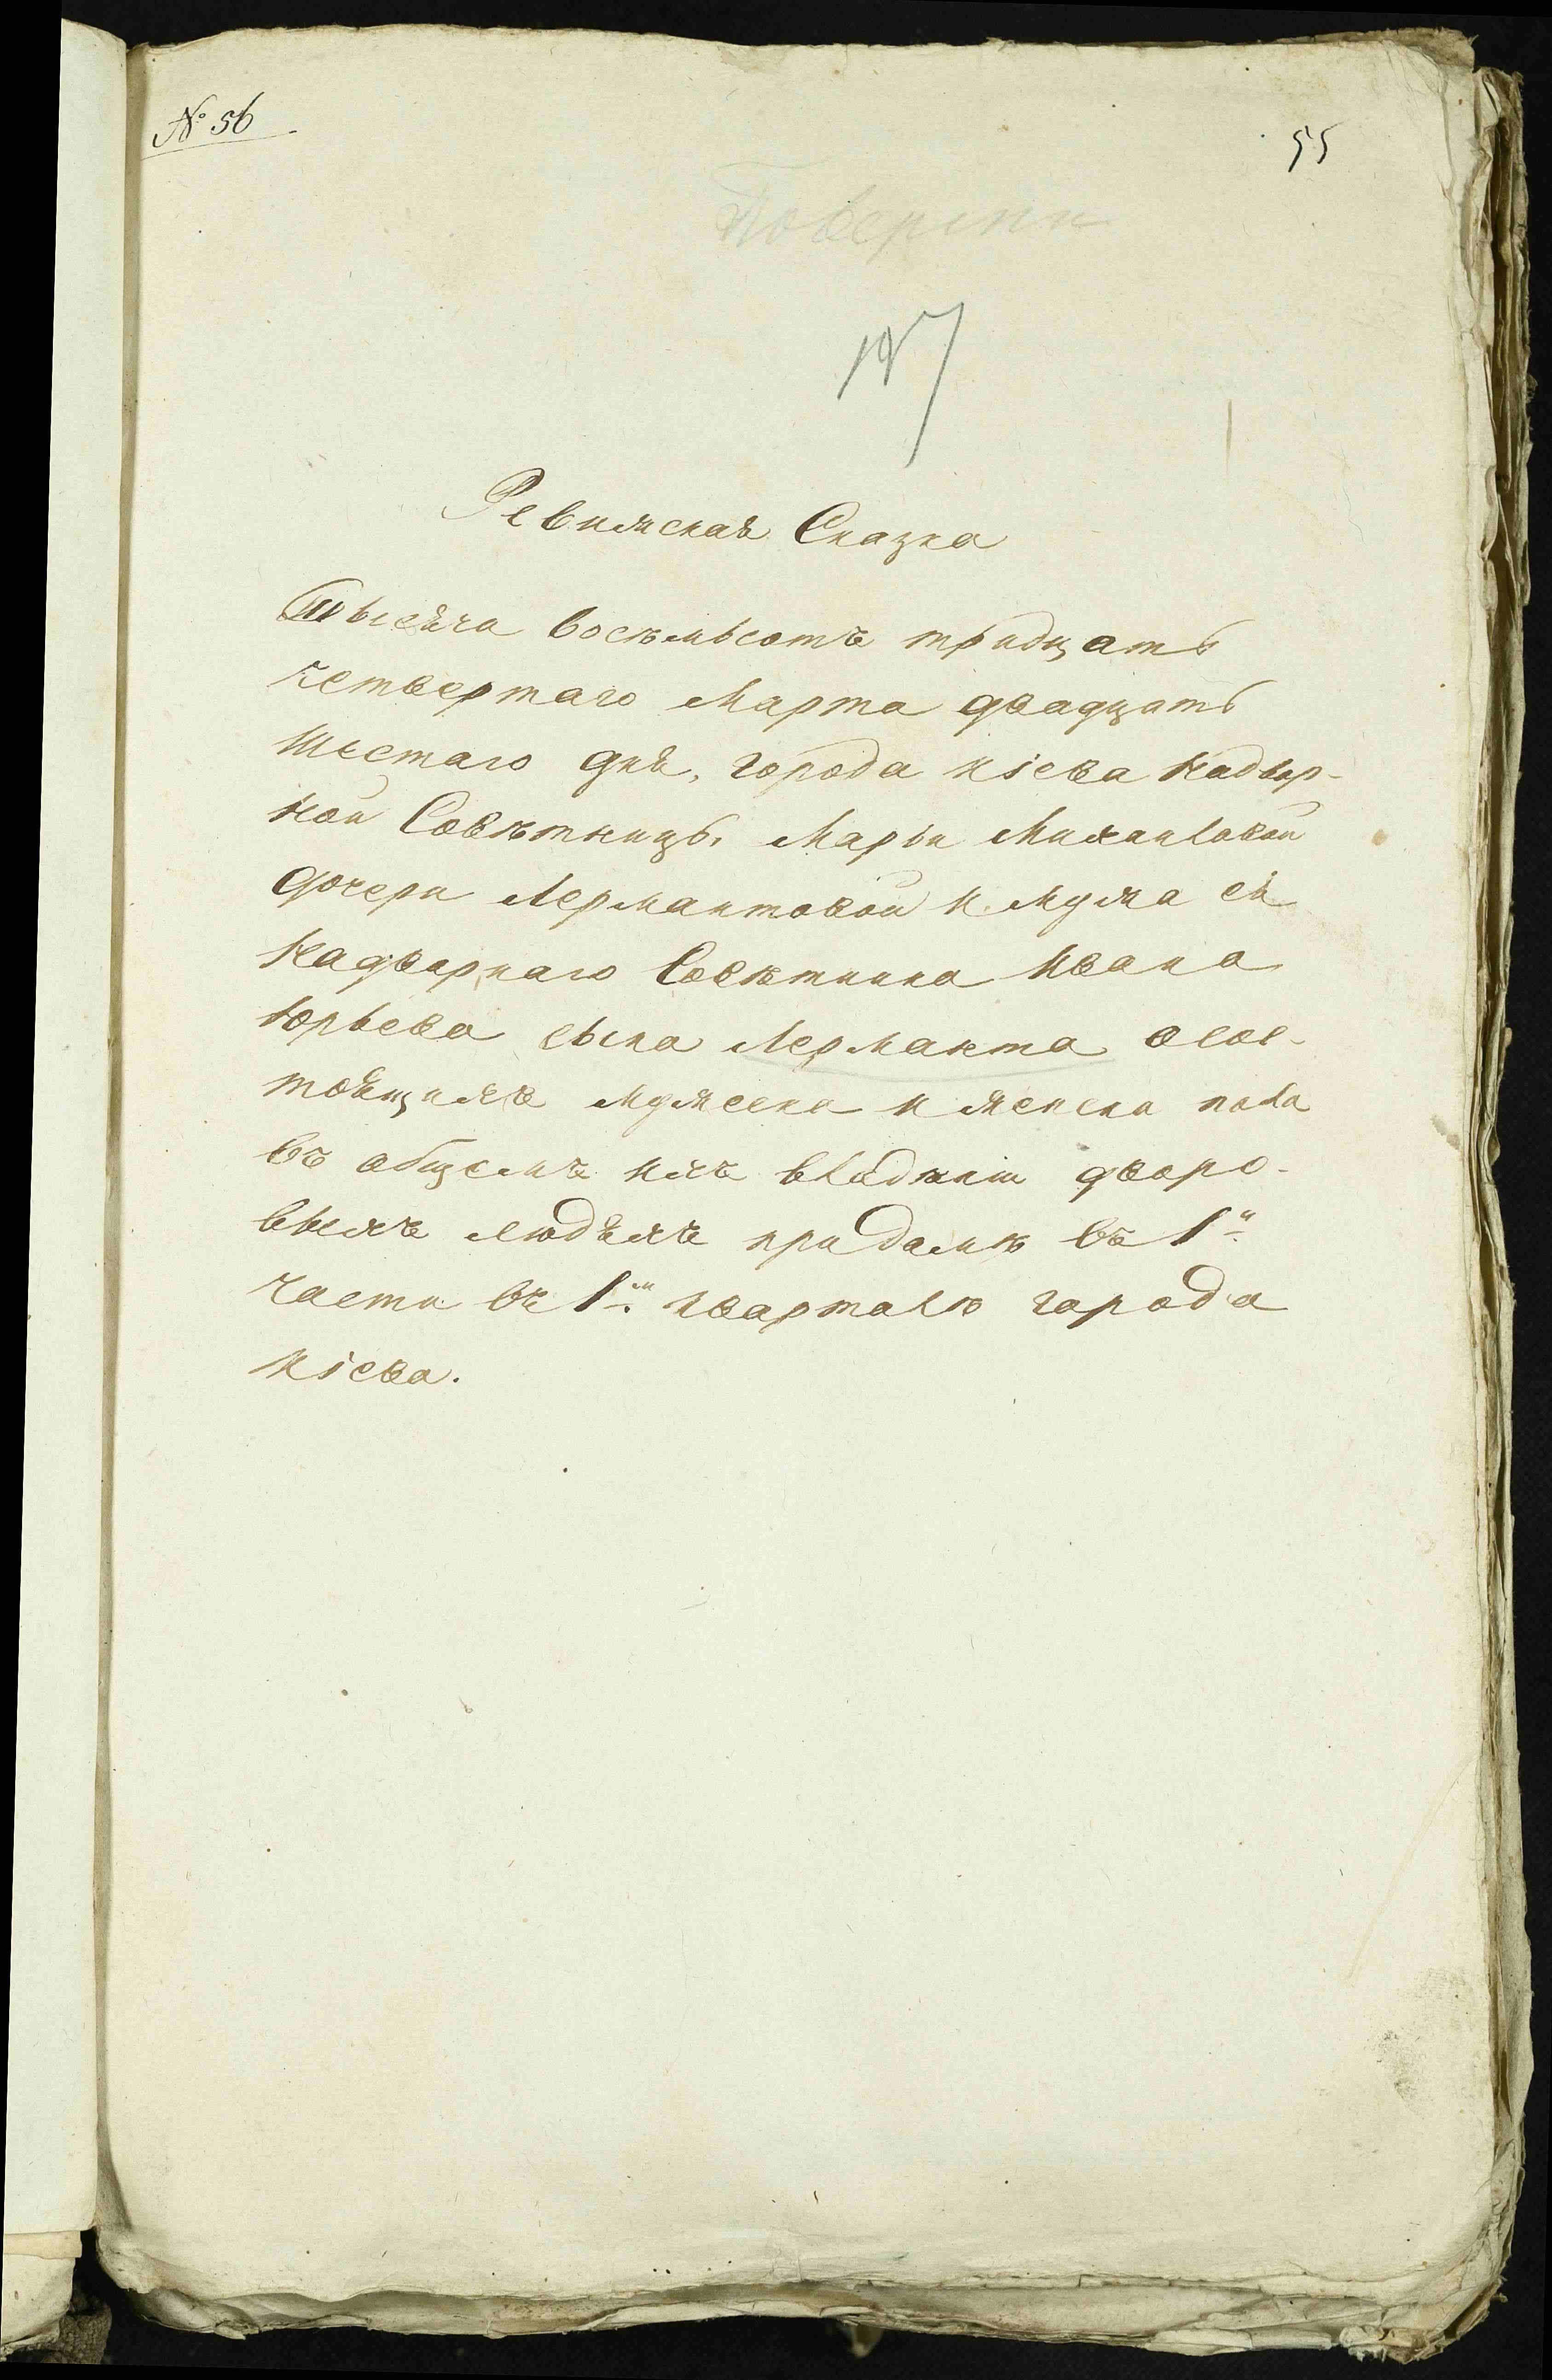 № 56
55
Ревижская Сказка
Тысяча восѣмьсотъ тридцать
четвертаго Марта двадцать
Шестаго дня, города Кіева Надвор-
ной Совѣтницы Марьи Михаиловой
дочери Лермантовой и мужа ея
Надворнаго Совѣтника Ивана
Юрьева сына Лерманта осос-
тоящихъ мужеска и женска пола
въ общемъ ихъ владѣніи дворо-
выхъ людяхъ при домѣ въ 1й
части въ 1м кварталѣ города
Кіева.